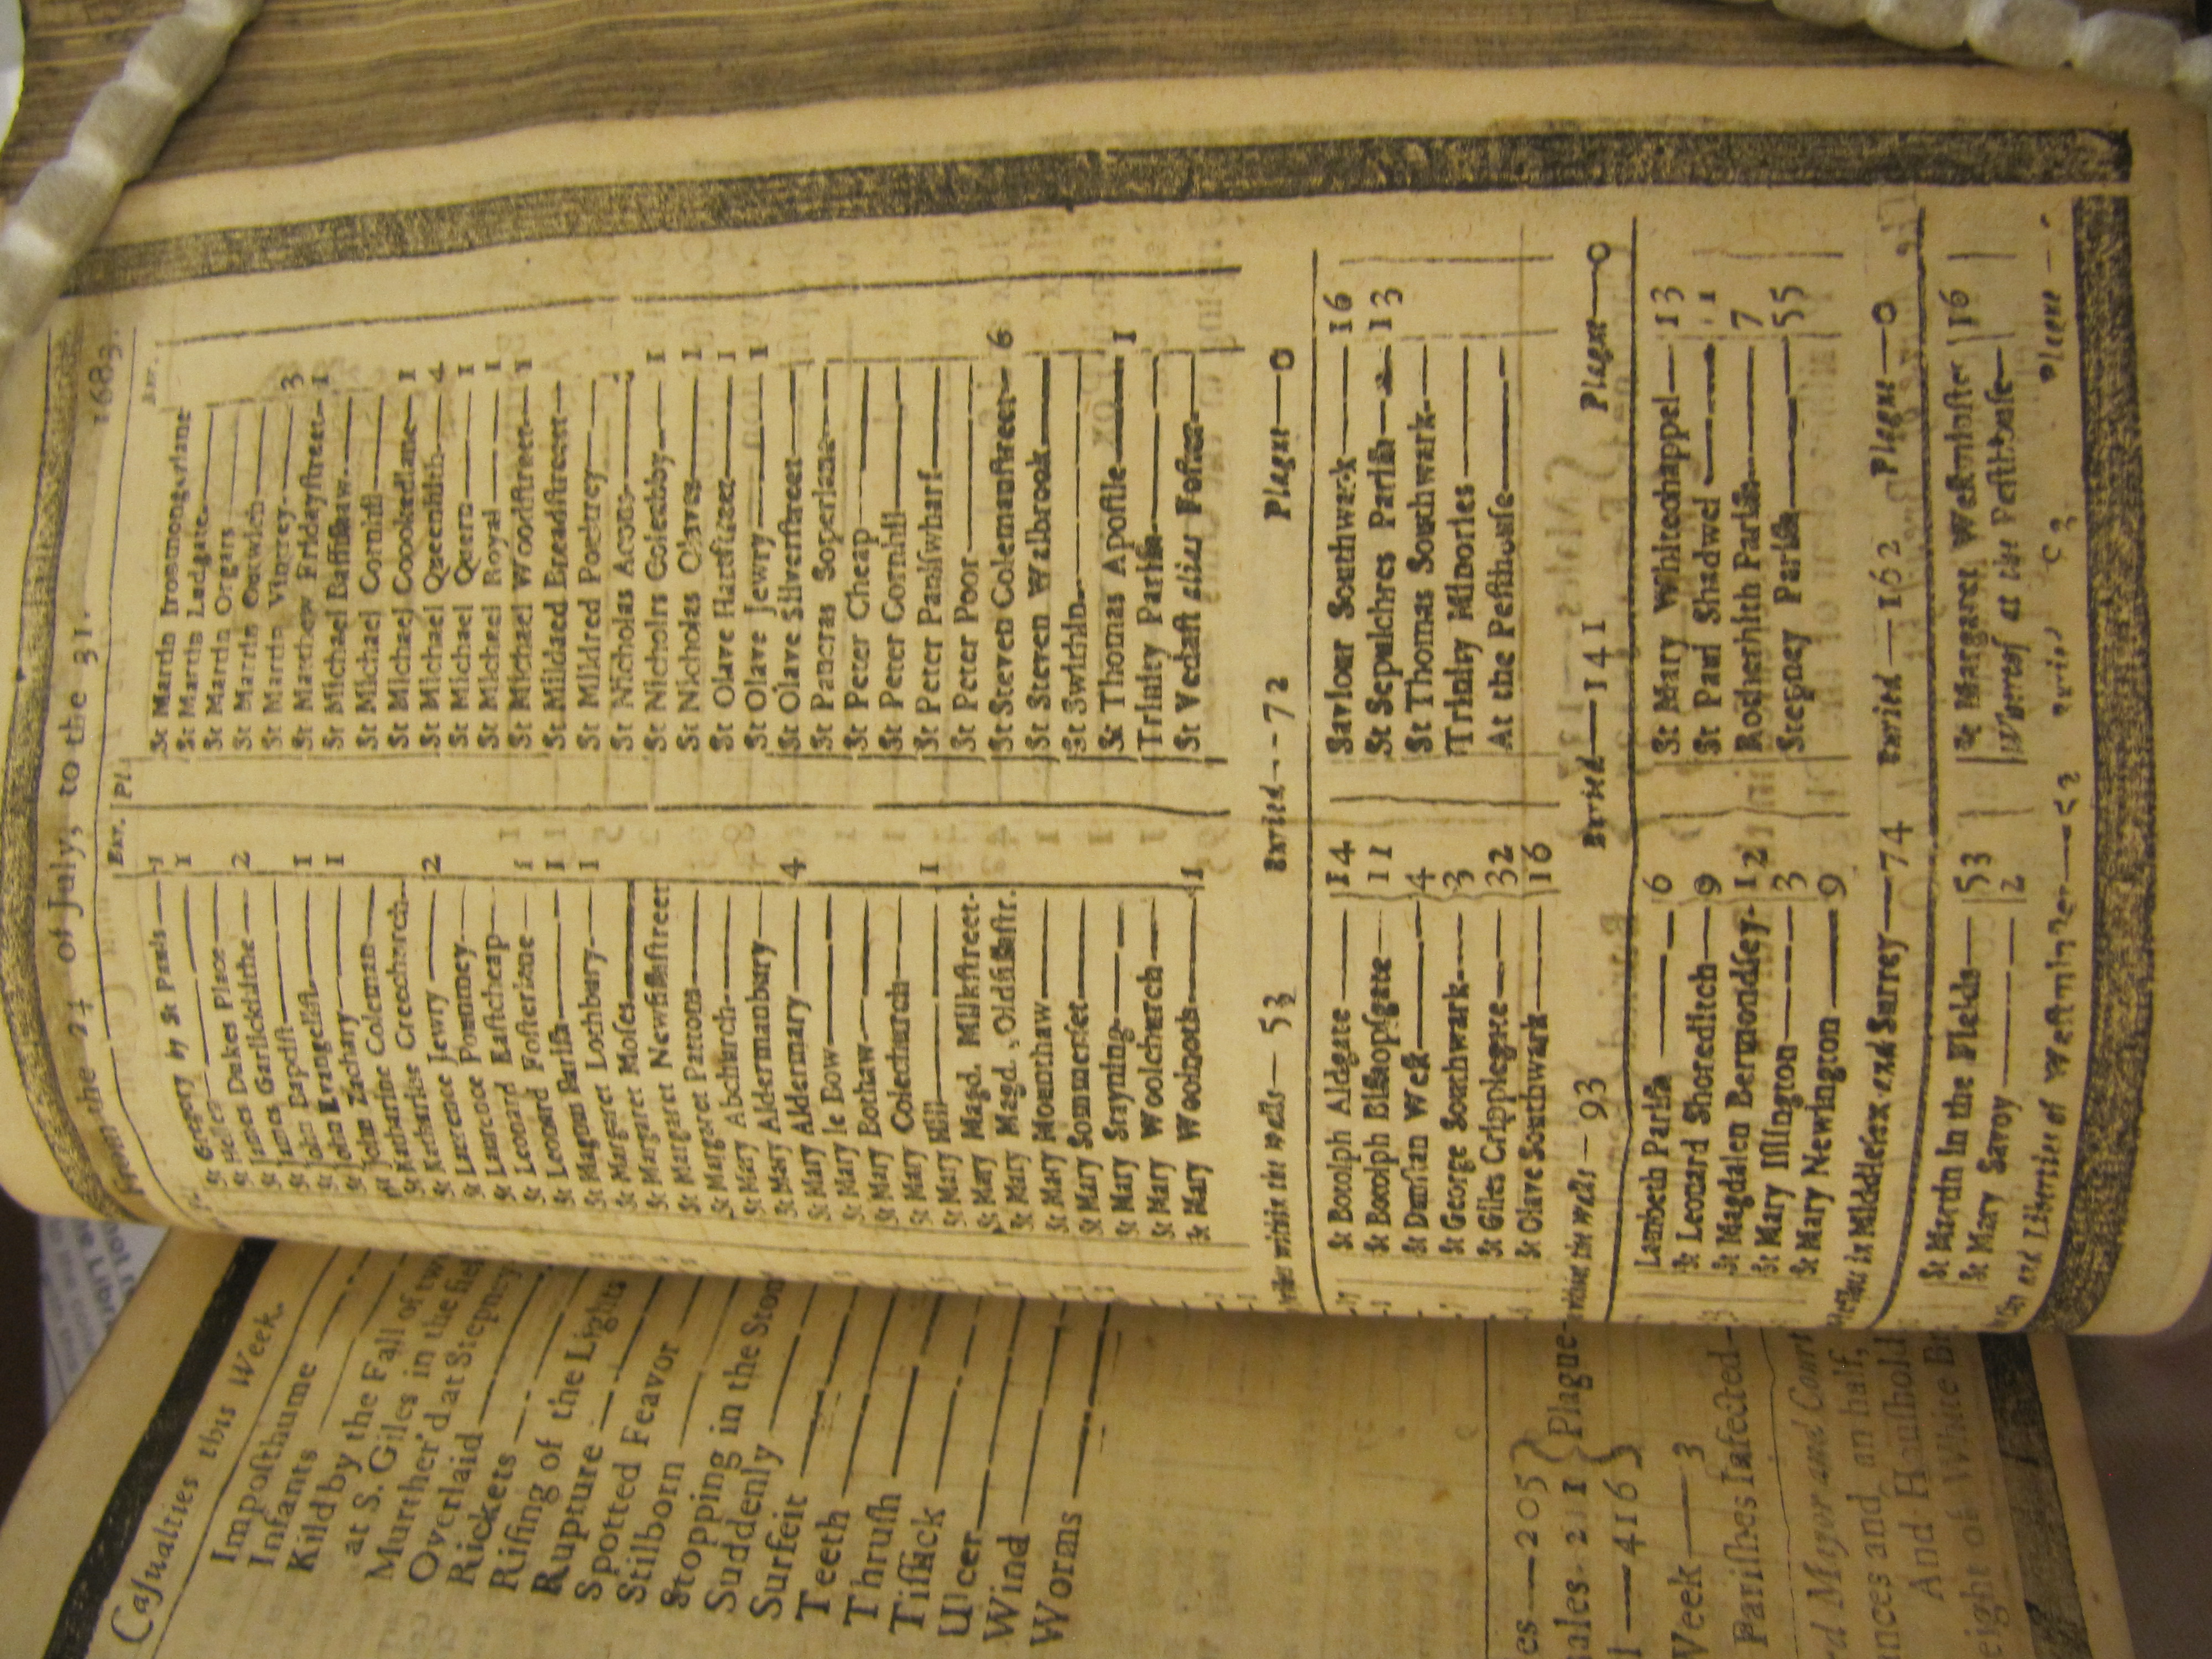 from the 24 of July, to the 31. 1683.
Bur. Pl. Bur.
St Gregory by St Pauls — 1
1
St James Dukes Place —
St James Garlickhithe — 2
St John Baptist —
St John Evangelist — 1
St John Zachary — 1
St Katharine Coleman —
St Katharine Creechurch —
St Lawrence Jewry — 2
St Lawrence Pountney —
St Leonard Eastcheap —
St Leonard Fosterlane — 1
St Leonard Parish — 1
St Magnus Parish — 1
St Margaret Lothbury —
St Margaret Moses —
St Margaret Newfishstreet
St Margaret Pattons —
St Mary Abchurch —
St Mary Aldermanbury —
St Mary Aldermary — 4
St Mary le Bow —
St Mary Bothaw —
St Mary Colechurch —
St Mary Hill — 1
St Mary Magd. Milkstreet-
St Mary Magd. Oldfishstr.
St Mary Mounthaw —
St Mary Sommerset —
St Mary Stayning —
St Mary Woolchurch —
St Mary Woolnoth — 1
St Martin Ironmongerlane
St Martin Ludgate —
St Martin Orgars —
St Martin Outwich —
St Martin Vintrey — 3
St Matthew Fridaystreet — 1
St Michael Bassishaw —
St Michael Cornhil —
St Michael Crookedlane — 1
St Michael Queenhith — 4
St Michael Quern — 1
St Michael Royal — 1
St Michael Woodstreet — 1
St Mildred Breadstreet —
St Mildred Poultrey —
St Nicholas Acons —
St Nicholas Coleabby — 1
St Nicholas Olaves — 1
St Olave Hartstreet — 1
St Olave Jewry — 1
St Olave Silverstreet —
St Pancras Soperlane —
St Peter Cheap —
St Peter Cornhil —
St Peter Paulswharf —
St Peter Poor —
St Steven Colemanstreet — 6
St Steven Walbrook —
St Swithin —
St Thomas Apostle — 1
Trinity Parish —
St Vedast alias Foster —
within the walls — 53 Buried — 72 Plague — 0
St Botolph Aldgate — 14
St Botolph Bishopsgate — 11
St Dunstan West — 4
St George Southwark — 3
St Giles Cripplegate — 32
St Olave Southwark — 16
Saviour Southwark — 16
St Sepulchres Parish — 13
St Thomas Southwark —
Trinity Minories —
At the Pesthouse —
without the walls — 93 Buried — 141 Plague — 0
Lambeth Parish — 6
St Leonard Shoreditch — 9
St Magdalen Bermondsey — 12
St Mary Islington — 3
St Mary Newington — 9
St Mary Whitechappel — 13
St Paul Shadwel — 1
Rotherhith Parish — 7
Stepney Parish — 55
in Middlesex and Surrey — 74 Buried — 162 Plague — 0
St Martin in the Fields — 53
St Mary Savoy — 2
St Margaret Westminster 16
Whereof at the Pesthouse —
and Liberties of Westminster Plague —
Casualties this Week.
Imposthume
Infants
Kild by the Fall of
at S. Giles in the
Murther'd at Stepney
Overlaid
Rickets
Rising of the Lights
Rupture
Spotted Feavor
Stilborn
Stopping in the
Suddenly
Surfeit
Teeth
Thrush
Tissick
Ulcer
Wind
Worms
205
211 Plague
416
Week — 3
Parishes Infected
Mayor and Court
and an half,
And Houshold